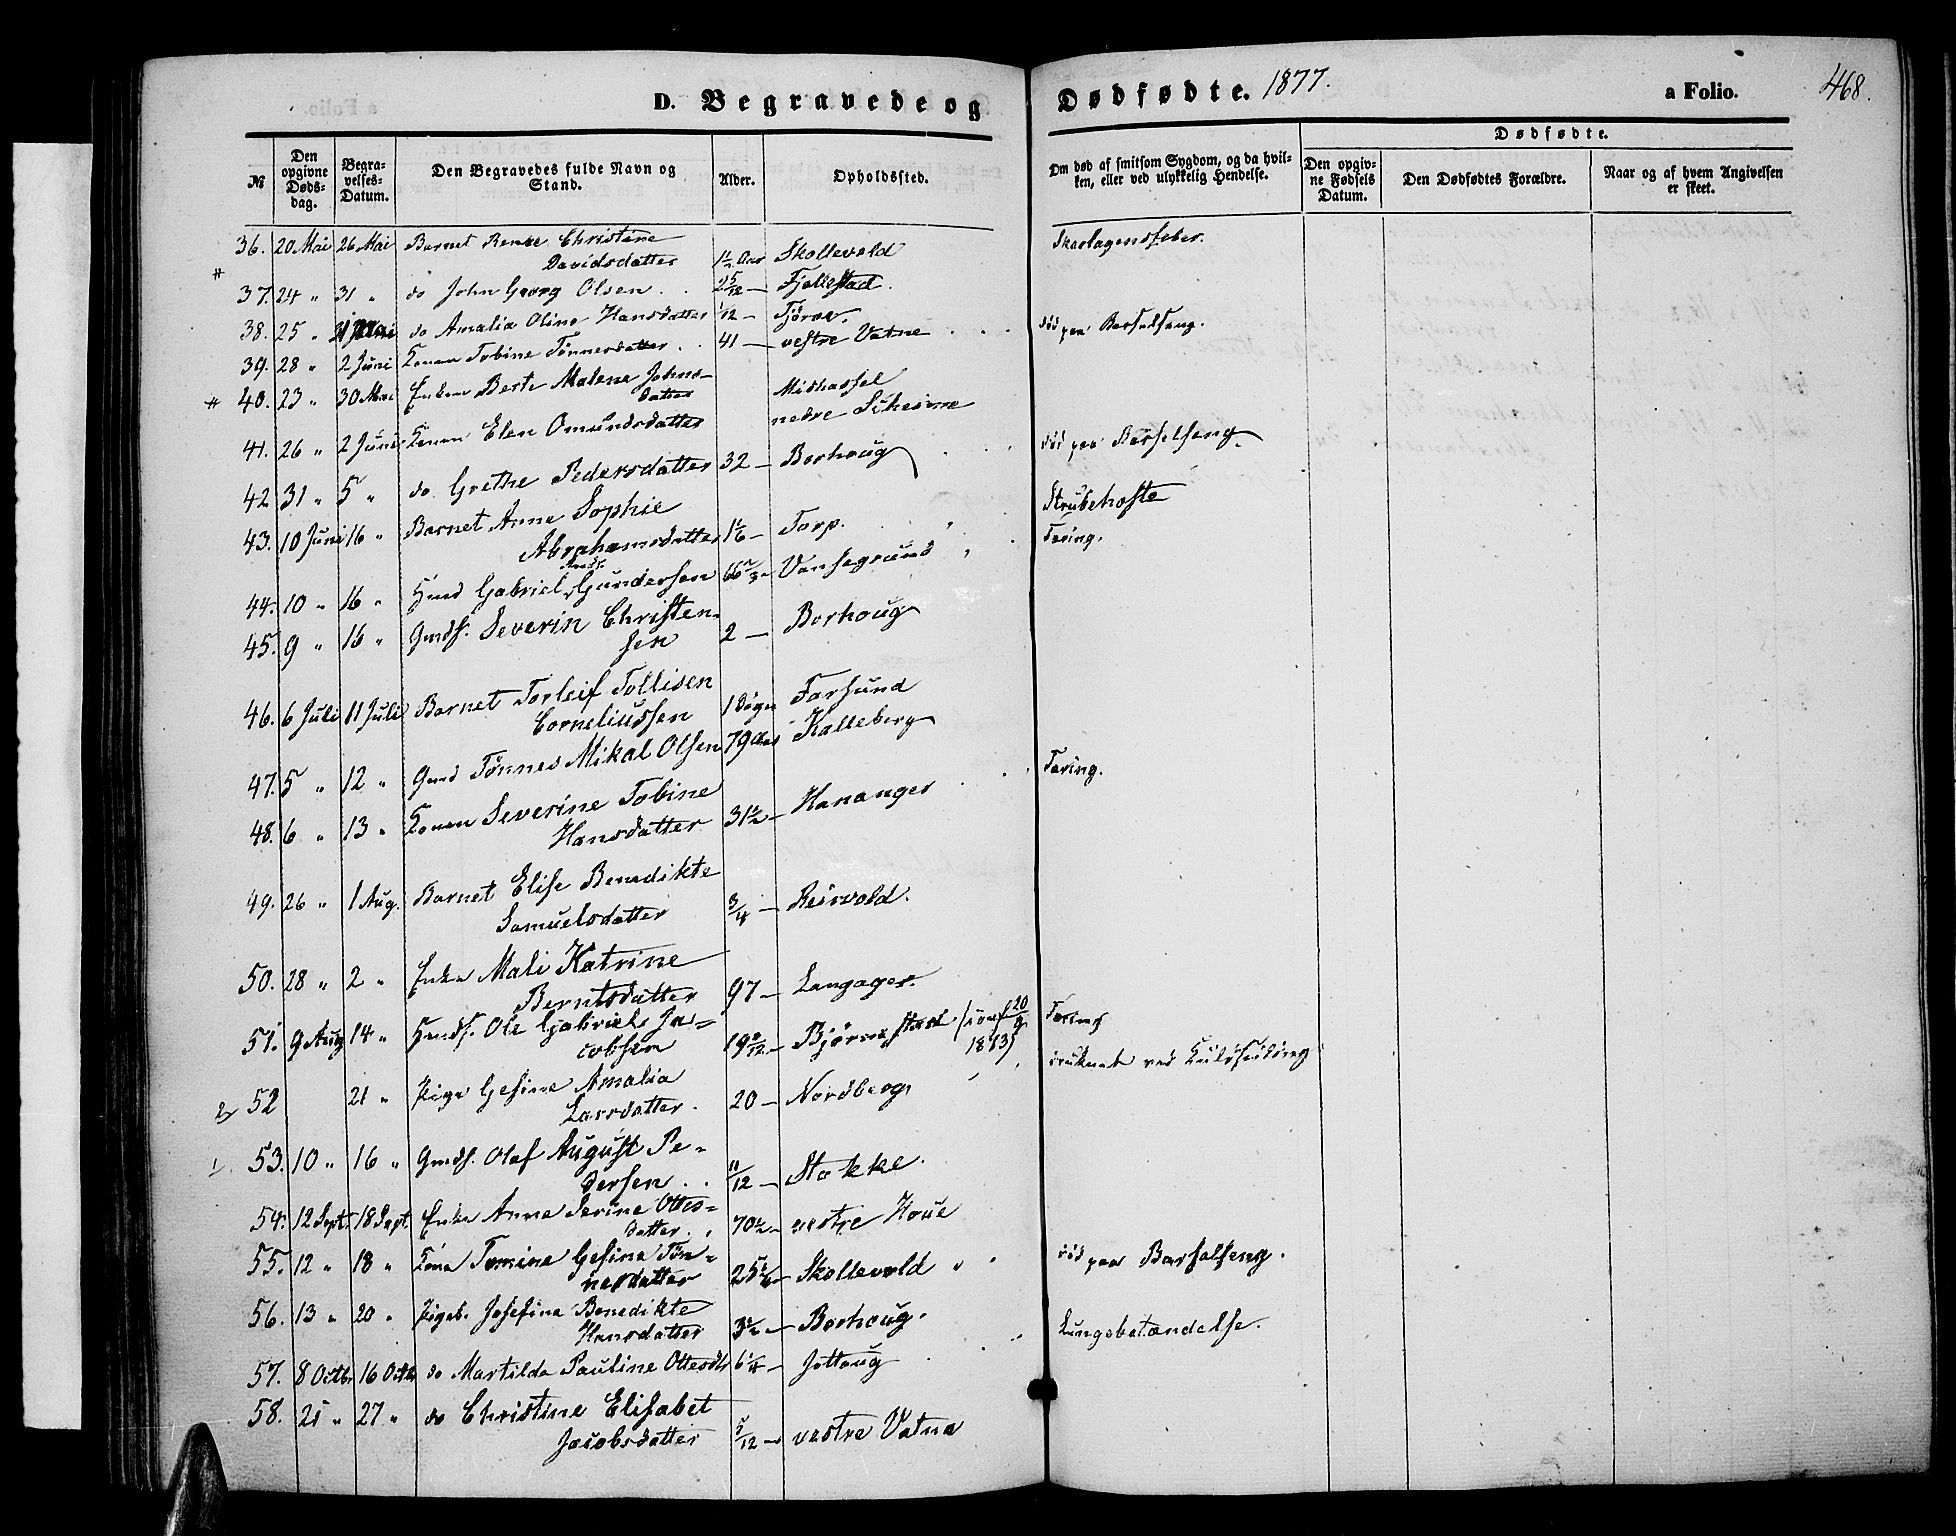 D. Begravede og Dødfødte. 1877. a Folio. 468.
№ Den opgivne Dødsdag. Begravelses-Datum. Den Begravedes fulde Navn og Stand. Alder. Opholdssted. Om død af smitsom Sygdom, og da hvilken, eller ved ulykkelig Hendelse. Dødfødte. Den opgivne Fødsels Datum. Den Dødfødtes Forældre. Naar og af hvem Angivelsen er skeet.
36. 20 Mai 26 Mai Barnet Christine
Davidsdatter 1½ Aar Skollevold Skarlagensfeber.
37. 24 " 31 " do John Georg Olsen 2 5/12 — Fjellestad.
38. 25 " do Amalia Oline Hansdatter 1/12 — Tjørve.
39. 28 " 2 Juni Konen Tobine Tønnesdatter 41 — vestre Vatne død paa Barselseng.
40. 23 " 30 Mai Enken Berte Malene Johns-
datter Midhassel
41. 26 " 2 Juni Konen Elen Omundsdatter nedre
42 31 " 5 " do Grethe Pedersdatter 32 — Borhoug død paa Barselseng
43. 10 Juni 16 " Barnet Anne Sophie
Abrahamsdatter 1½ — Torp. Strubehoste
44. 10 " 16 " Gmd Gabriel Gundersen Vansegrund Tæring.
45. 9 " 16 " Gmds. Severin Christen-
sen 2 — Borhoug
46. 6 Juli 11 Juli Barnet Torleif Tollisen
Corneliussen 1 Døgn Farsund
47. 5 " 12 " Gmd Tønnes Mikal Olsen 79 Aar Kalleberg
48. 6 " 13 " Konen Severine Tobine
Hansdatter 31½ — Hananger Tæring.
49. 26 " 1 Aug. Barnet Elise Benedikte
Samuelsdatter 3/4 — Reisvold.
50. 28 " 2 " Enke Mali Katrine
Berntsdatter 97 — Langager.
51. 9 Aug 14 " Gmds. Ole Gabriels Ja-
cobsen 19 — Bjørnestad 20/9 Tæring
52 21 " Pige Gesine Amalia
Larsdatter. 20 — Nordberg druknet ved
53. 10 " 16 " Gmds. Olaf August Pe-
dersen 11/12 — Stokke.
54. 12 Sept. 18 Sept. Enke Anne Serine Ottes-
datter 70½ — vestre Houe
55. 12 " 18 " Kone Tomine Gesine Tøn-
nesdatter 25 — Skollevold død paa Barselseng.
56. 13 " 20 " Pigeb. Josefine Benedikte
Hansdatter 3½ — Borhoug. Lungebetændelse.
57. 8 Octb. 16 Octb do Martilda Pauline Ottesdtr 6¼ — Jølloug
58. 21 " 27 " do Christine Elisabet
Jacobsdatter 5/12 — vestre Vatne